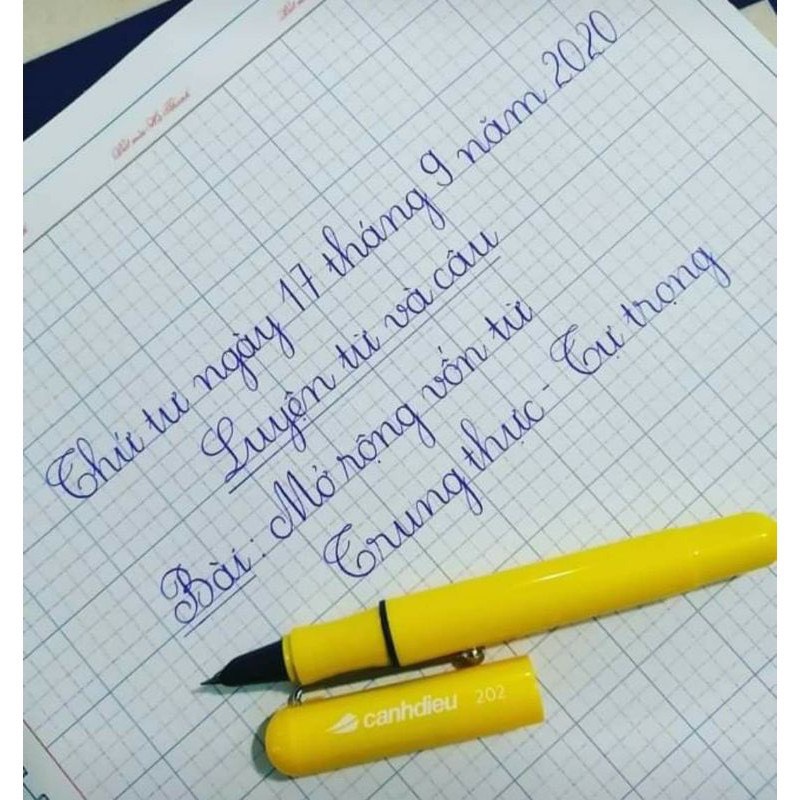 Thứ tư ngày 17 tháng 9 năm 2020
Luyện từ và câu
Bài: Mở rộng vốn từ
Trung thực - Tự trọng
canhdieu 202